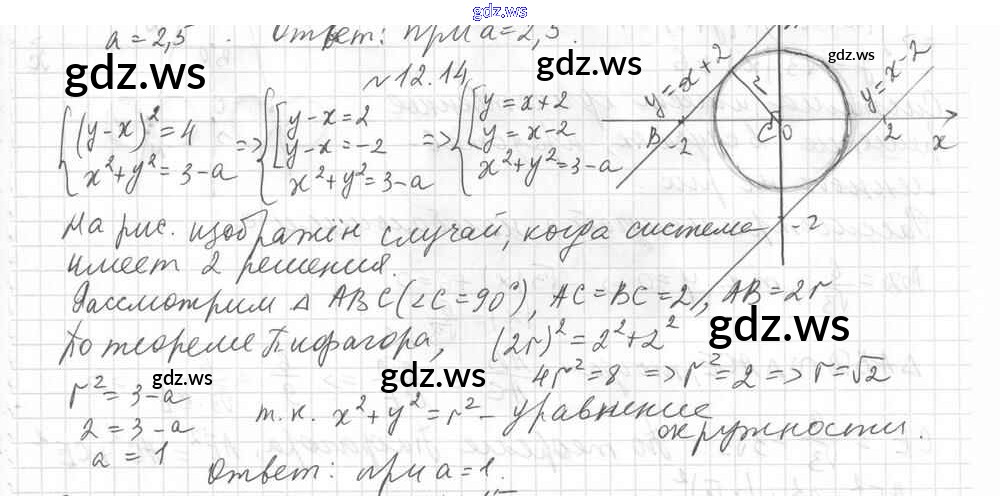 gdz.ws
a = 2,5. Ответ: при a = 2,5.
gdz.ws
gdz.ws
gdz.ws
№12.14
{(y-x)²=4 {[y-x=2 {[y=x+2
=> y-x=-2 => y=x-2
x²+y²=3-a x²+y²=3-a x²+y²=3-a
y=x+2 y=x-2
r
B C O 2 x
-2
-2
На рис. изображён случай, когда система
имеет 2 решения.
Рассмотрим △ABC (∠C=90°), AC=BC=2, AB=2r
gdz.ws
По теореме Пифагора, (2r)²=2²+2²
gdz.ws
gdz.ws
4r²=8 => r²=2 => r=√2
r²=3-a т.к. x²+y²=r² - уравнение
2=3-a окружности.
a=1
Ответ: при a=1.